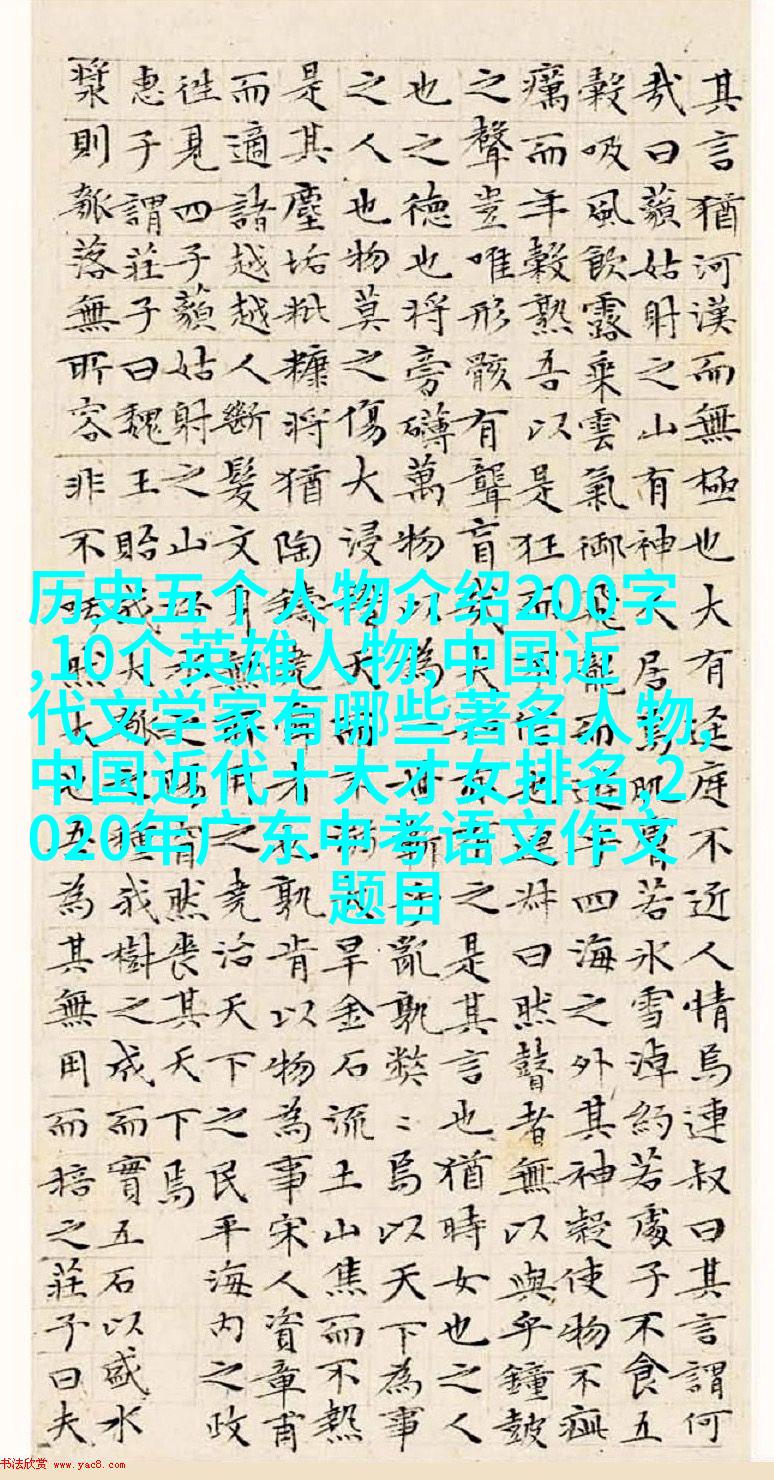 其言猶河漢而無極也大有逕庭不近人情焉連叔曰其言謂何
哉曰藐姑射之山有神人居焉肌膚若氷雪淖約若處子不食五
穀吸風飲露乘雲氣御飛龍而遊乎四海之外其神凝使物不疵
癘而年穀熟吾以是狂而不信也連叔曰然瞽者無以與乎鐘鼓
之聲豈唯形骸有聾盲哉夫知亦有之是其言也猶時女也之人
也之德也將旁礴萬物以為一世蘄乎亂孰弊弊焉以天下為事
之人也物莫之傷大浸稽天而不溺大旱金石流土山焦而不熱
是其塵垢粃糠將猶陶鑄堯舜者也孰肯以物為事宋人資章甫
而適諸越越人斷髮文身無所用之堯治天下之民平海内之政
徃見四子藐姑射之山汾水之陽窅然喪其天下焉
惠子謂莊子曰魏王貽我大瓠之種我樹之成而實五石以盛水
漿則瓠落無所容非不呺然大也吾為其無用而掊之莊子曰夫
历史五个人物介绍200字
,10个英雄人物,中国近
代文学家有哪些著名人物,
中国近代十大才女排名,2
020年广东中考语文作文
题目
书法欣赏 www.yac8.com